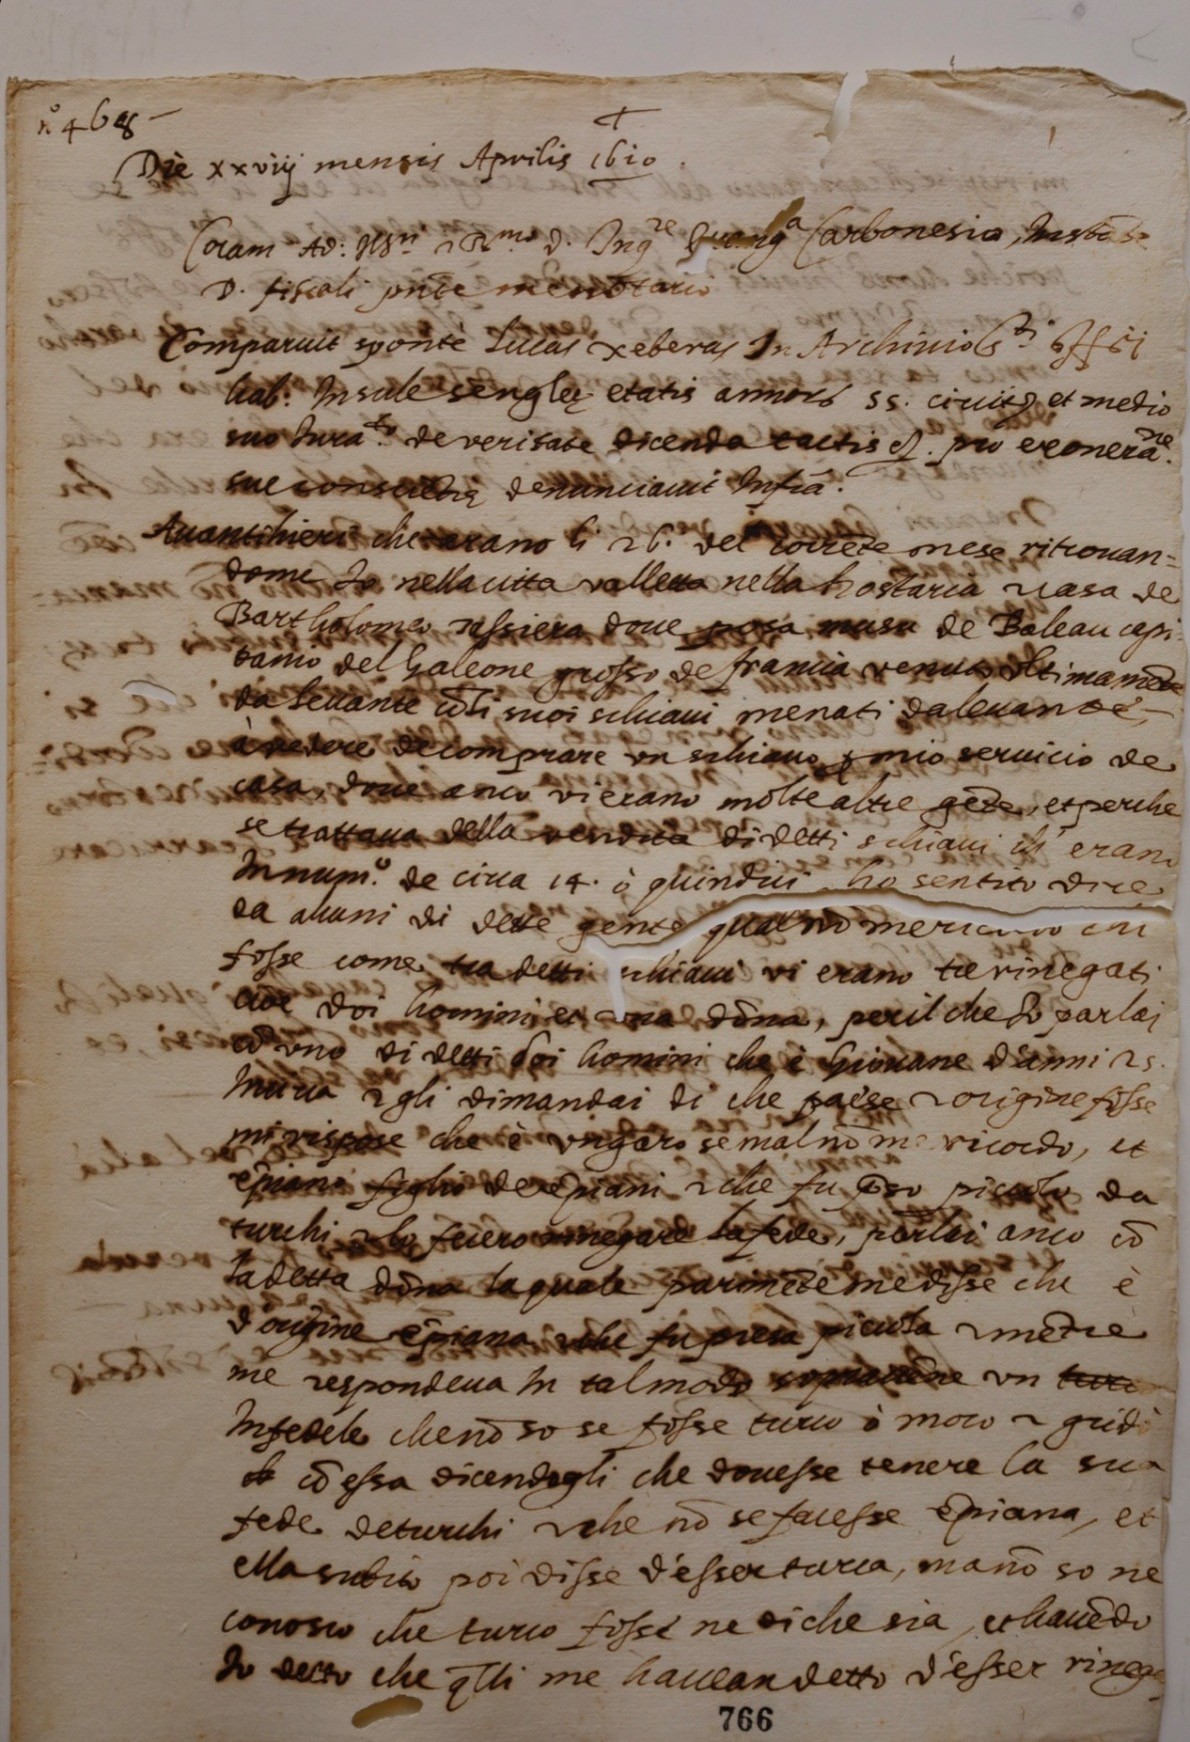 n.º 468 —
Die xxviij mensis Aprilis 1610.
Coram Ad: Ill.ri et R.mo D. Inq.re Carbonesio, Instāte
D. fiscali pñte
Comparuit sponte Lucas xeberas In Archivio S.ti offitij
hab: Insule senglee etatis annorũ 55. cuius et medio
suo Iura.to de veritate dicenda tactis &. pro exonera.ne
sue conscientie denunciavit Infrã.
Avantihieri che erano li 26. del corrẽte mese ritrovan=
dome Io nella citta valletta nella hostaria et casa de
Bartholomeo dove posa musu de Baleau capi=
tanio del Galeone grosso de francia venuto ultimamẽte
da levante cõ li suoi schiavi menati da levante,
à vedere de comprare un schiavo p mio servicio de
casa, dove anco vi erano molte altre gẽte, et perche
se trattava della vendita di detti schiavi ch' erano
In num.º de circa 14. ò quindici ho sentito dire
da alcuni di dette gente quale nõ mi chi
fosse come tra detti schiavi vi erano tre rinegati
cioe doi homini et una dõna, per il che Io parlai
cõ uno di detti doi homini che è giovane d'anni 25.
In circa et gli dimandai di che paese et origine fosse
mi rispose che è ungaro se mal nõ me ricordo, et
xp̃iano figlio de xp̃iani et che fu p̃so piccolo da
turchi et lo fecero rinegare la fede, parlai anco cõ
la detta dõna la quale parimẽte me disse che è
d'origine xp̃iana et che fu presa picciola et mẽtre
me respondeva In tal modo sopravẽne un turco
Infedele che nõ so se fosse turco ò moro et gridò
cõ essa dicendogli che dovesse tenere la sua
fede de turchi et che nõ se facesse xp̃iana, et
ella subito poi disse d'esser turca, ma nõ so ne
conosco che turco fosse ne di che sia, et havẽdo
Io detto che q̃lli me haveano detto d'esser rinega
766